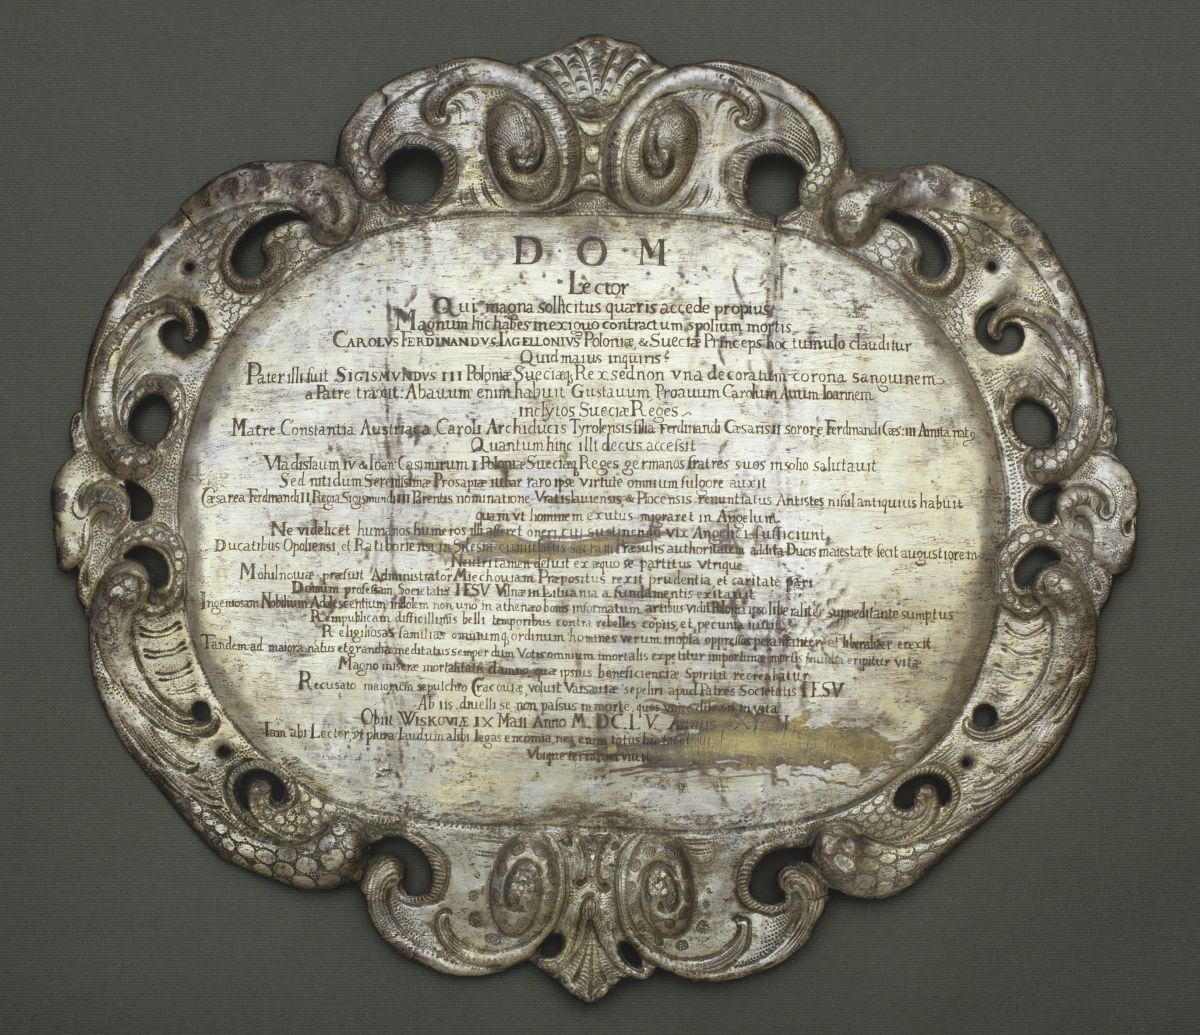 D · O · M
Lector
Qui magna sollicitus quæris accede propius
Magnum hic habes in exiguo contractum spolium mortis
CAROLVS FERDINANDVS IAGELLONIVS Poloniæ, & Sueciæ Princeps hoc tumulo clauditur
Quid maius inquiris?
Pater illi fuit SIGISMVNDVS III Poloniæ Sueciæq Rex, sed non vna decoratum corona sanguinem
a Patre traxit: Abauum enim habuit Gustauum, Proauum Carolum, Auum Ioannem
inclytos Sueciæ Reges
Matre Constantia Austriaca Caroli Archiducis Tyrolensis filia Ferdinandi Cæsaris II sorore, Ferdinandi Cæs: III Amita nat
Quantum hinc illi decus accessit
Vladislaum IV & Ioan: Casimirum I Poloniæ Sueciæq Reges germanos fratres suos in solio salutauit
Sed nitidum Serenissimæ Prosapiæ iubar raro ipse virtute omnium fulgore auxit
Cæsarea Ferdinandi II Regia Sigismundi III Parentis nominatione Vratislauiensis, & Plocensis renuntiatus Antistes nihil antiquius habuit
quam vt hominem exutus migraret in Angelum
Ne videlicet humanos humeros illi afferet oneri cui sustinendo vix Angelici sufficiunt
Ducatibus Opoliensi et Ratiboriensi in Silesia cumulatis sacram Præsulis authoritatem addita Ducis maiestate fecit augustiorem
Neutri tamen defuit ex æquo se partitus vtrique
Mohilnouiæ præfuit Administrator Miechouiam Præpositus rexit prudentia, et caritate pari
Domum professam Societatis IESV Vilnæ in Lituania a fundamentis exitauit
Ingeniosam Nobilium Adolescentium indolem non uno in athenæo bonis informatum artibus vidit Polonia ipso liberalit̃ suppeditante sumptus
Rempublicam difficillimis belli temporibus contra rebelles copiis, et pecunia iuuit
Religiosas familias omniumq ordinum homines verum inopia oppressos peramanter et liberaliter erexit
Tandem ad maiora natus et grandia meditatus semper dum Votis omnium imortalis expetitur importunæ mortis inuidia eripitur vitæ
Magno miseræ mortalitatis damno, quæ ipsius beneficienciæ Spiritu recreabatur
Recusato maiorum sepulchro Cracouiæ, voluit Varsauiæ sepeliri apud Patres Societatis IESV
Ab iis diuelli se non passus in morte, quos vnice dilexit in vita
Obiit WISKOVIÆ IX Maii Anno M. DCLV.
Iam abi Lector, vt plura laudum alibi legas encomia, neq enim totus hic iacet
Vbique terrarum viuit